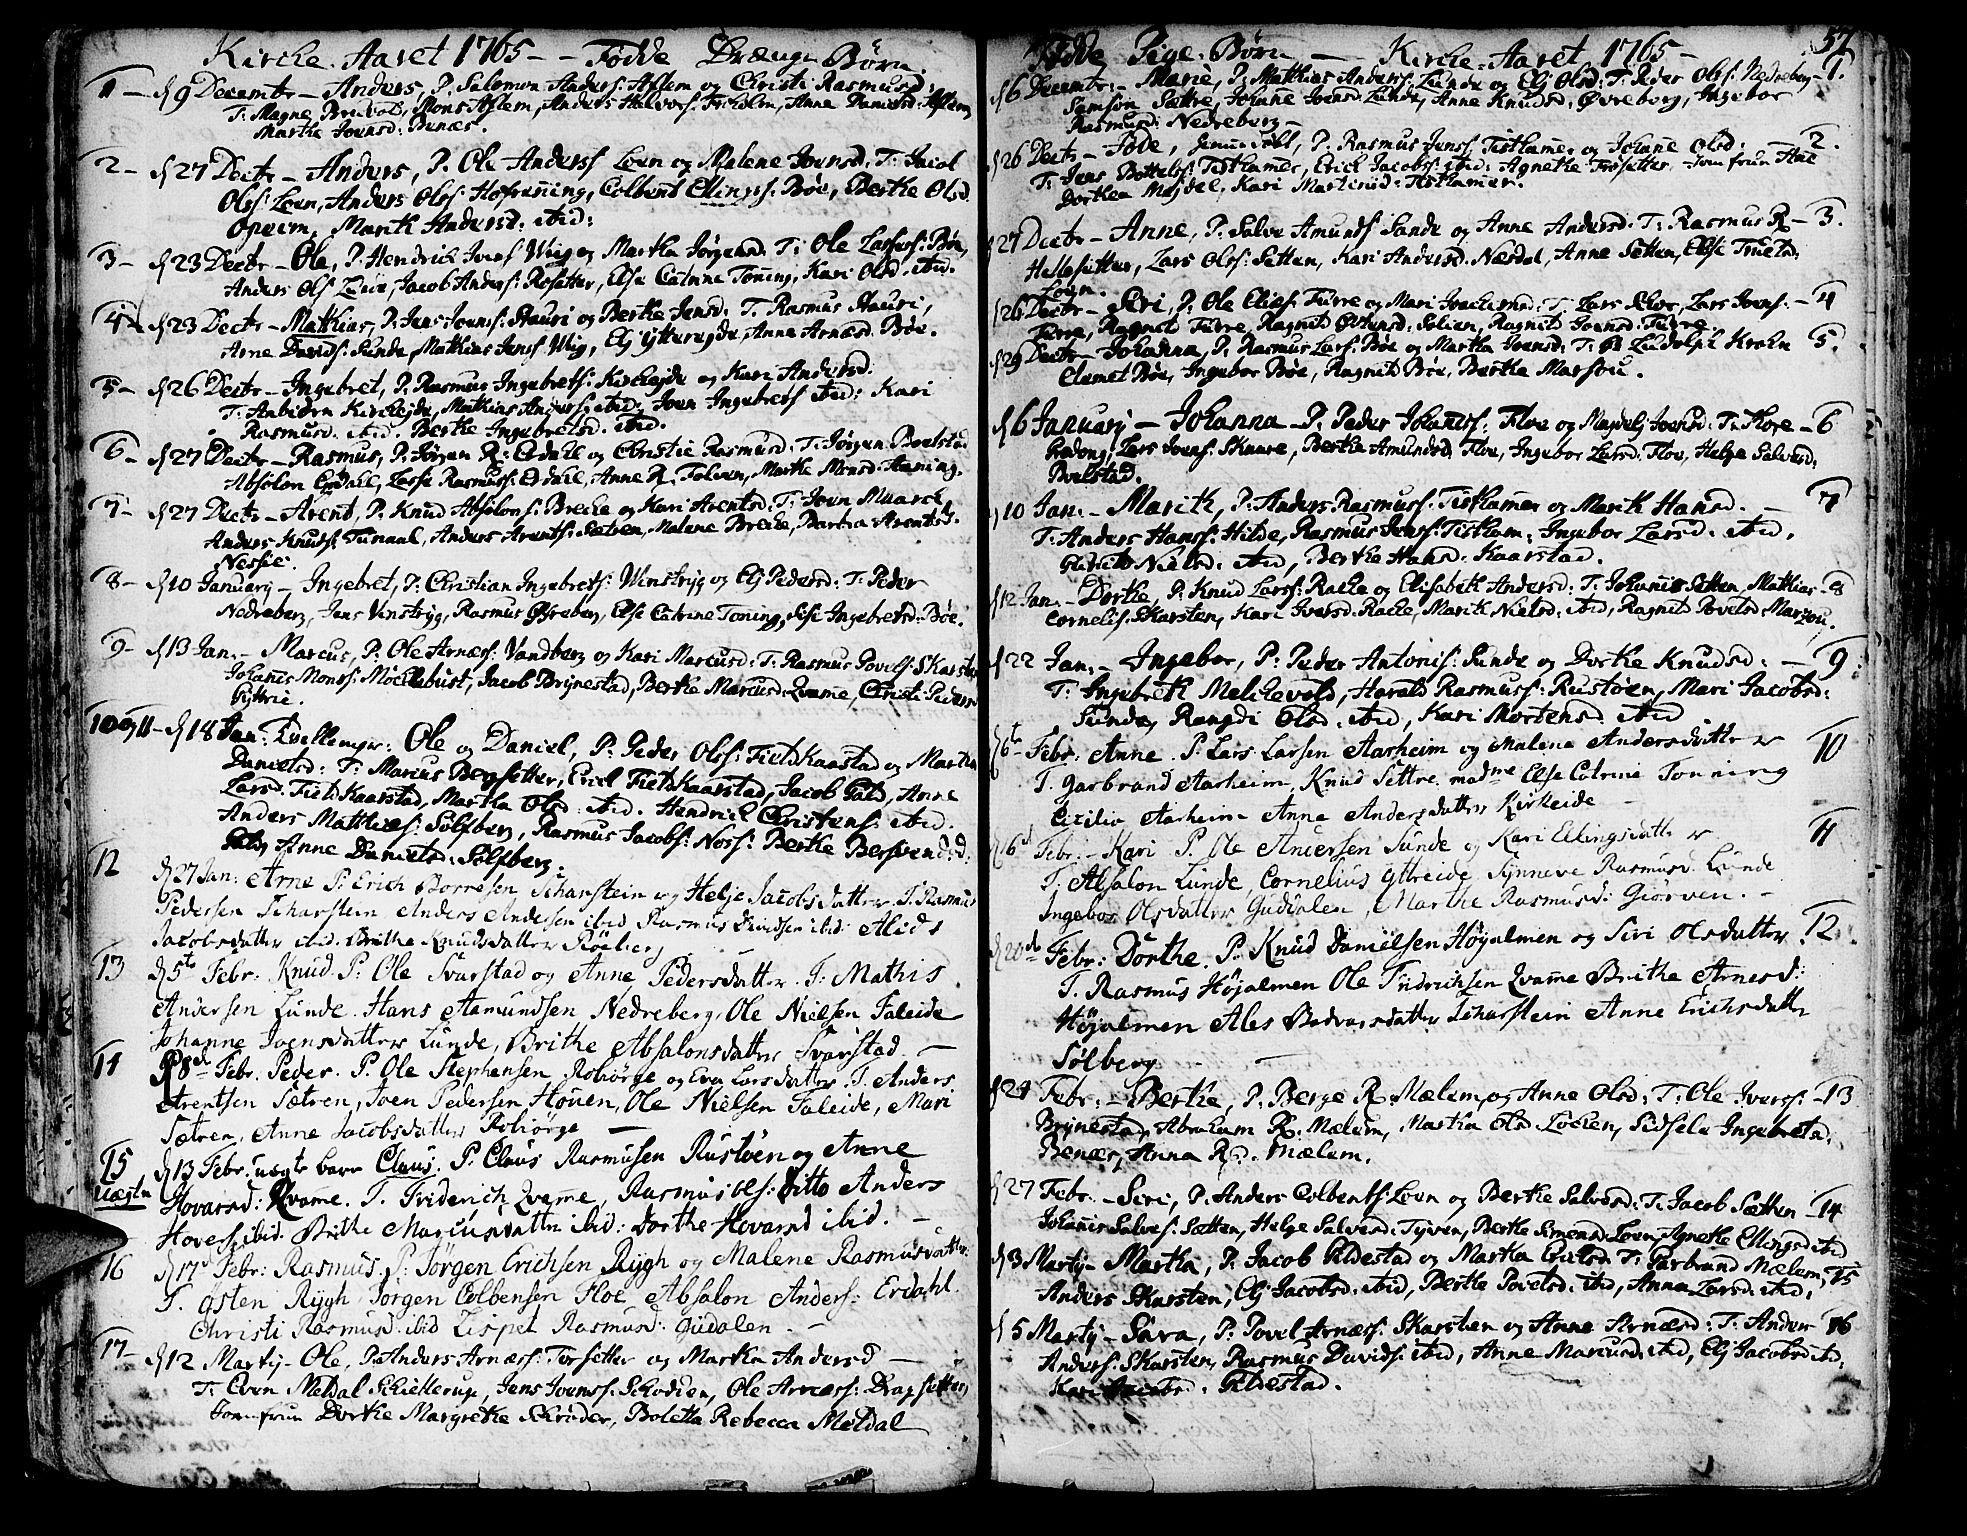 Kirche-Aaret 1765 - - Födde Drænge Börn.
1 - d 9 Decembr - Anders, P. Salomon Anders: Aflem og Christi Rasmusd:
T: Magne Mons Aflem, Anders Halvors: Anne Danielsd: Aflem
Marthe Joensd: Benæs.
2 - d 27 Decbr - Anders, P. Ole Anders Loen og Malene Joensd: T: Jacob
Ols: Loen, Anders Ols: Colbent Ellings: Böe, Berthe Olsd.
Opeim, Marth Andersd. ibid:
3 - d 23 Decbr - Ole, P. Hendrich og Martha Jørgensd. T: Ole Lasses: Böe,
Anders Ols Jacob Anders: Rosætter, Else Catrine Toning, Kari Olsd. ibid.
4 - d 23 Decbr - Mathias, P. Jens Joens: Stauri og Berthe Jensd. T. Rasmus Stauri,
Arne Davids: Sunde, Mathias Jens Wiig, Elj Ytterejde, Anne Arnæsd. Böe.
5 - d 26 Decbr - Ingebret, P. Rasmus Ingebrets: Kirchejde og Kari Andersd.
T. Anbiörn Kirchejde, Mathias Anders: ibid: Joen Ingebrets ibid: Kari
Rasmusd. ibid. Berthe Ingebretsd. ibid.
6 - d 27 Decbr - Rasmus, P. Jörgen R: Erdahl og Christie Rasmusd: T: Jörgen Boelstad
Absolon Erdahl, Lasse Rasmus: Erdahl, Anne R. Marthe Monsd:
7 - d 27 Decbr - Arent, P. Knud Absolons: Breche og Kari Arentsd: T: Joen Muarch
Anders Knuds: Anders Arents: Sætren, Malene Breche, Barbra Arentsd.
Nessie.
8 - d 10 Januarij - Ingebret, P: Christian Ingebrets: Winstryg og Elj Pedersd: T: Peder
Nedreberg, Jens Vinstryg, Rasmus Öfreberg, Else Catrine Toning, Ingebretsd. Böe.
9 - d 13 Jan: - Marcus, P: Ole Arnæs: Vandberg og Kari Marcusd: T: Rasmus Povels: Skarsten
Johanes Mons: Möchlebust, Jacob Brynestad, Berthe Marcusd: Qvame, Christi Pedersd
Yttrie.
10 og 11 - d 18 Jan: Tvillinger: Ole og Daniel, P: Peder Ols: Fieldkaarstad og Martha
Danielsd: T: Marcus Bergsetter, Erich Fieldkaarstad, Jacob Anne
Larsd. Fieldkaarstad, Martha Olsd ibid. Hendrich Christens: ibid.
Anders Matthies: Sölfberg, Rasmus Jacobs: Nos: Berthe
Anne Danielsd. Sölfberg.
12 d 27 Jan: Arne P: Erich Borresen Scharstein og Helje Jacobsdatter T: Rasmus
Pedersen Scharstein Anders Andersen ibid Rasmus Davidsen ibid: Alids
Jacobsdatter ibid. Brithe Knudsdatter
13 d 5te Febr: Knud P: Ole Svarstad og Anne Pedersdatter. T: Mathis
Andersen Lunde. Hans Aamundsen Nedreberg, Ole Nielsen Faleide
Johanne Joensdatter Lunde, Brithe Absalonsdatter Svarstad. -
14 d 8d Febr. Peder. P. Ole Stephensen Robiörge og Eva Larsdatter T. Anders
Arentsen Sætren, Joen Pedersen Houen, Ole Nielsen Faleide, Mari
Sætren, Anne Jacobsdatter Robiörge -
15 d 13 Febr: uægte barn Claus. P. Claus Rasmusen Rustöen og Anne
uægte Hovarsd: Qvame. T. Friderich Qvame, Rasmus Ols: ditto Anders
Hovers: ibid. Brithe Marcusdatter ibid: Dorthe Hovarsd ibid. -
16 d 17d Febr: Rasmus P. Jörgen Erichsen Rÿgh og Malene Rasmusdatter
T. östen Rÿgh Jörgen Colbensen Floe, Absalon Anders: Erdahl.
Christi Rasmusd. ibid Lispet Rasmusd: Gudalen -
17 - d 12 Martij - Ole, P. Anders Arnæs: Forsetter og Martha Andersd -
T: Even Meldal Schiellerup, Jens Joens: Ole Arnæs: Dragsetter,
Jomfruu Dorthe Margrethe Schröder, Boletta Rebecca Meldal
57
Födde Pige-Börn - Kirche-Aaret 1765 -
d 6 Decembr: - Marie, P. Mathias Anders: Lunde og Elj Olsd: T: Peder Ols: Nedreberg - 1.
Samson Sættre, Johane Joensd: Lunde, Anne Knudsd: Øvreberg, Ingebor
Rasmusd: Nedreberg -
d 26 Decbr - P. Rasmus Jens: Tisthamer og Johane Olsd: - 2.
T: Jens Tisthamer, Erich Jacobs: ibid: Agnethe Frøsetter, Jomfruu Ane
Dorthea Kari Tisthamer.
d 27 Decbr - Anne, P. Salve Amunds Sande og Anne Andersd: T: Rasmus R - 3.
Hellesetter, Lars Ols: Setten, Kari Andersd. Nærdal, Anne Setten, Else
Loen.
d 26 Decbr - Siri, P. Ole Elias: Furre og Mari T: Lars Lars Joens: - 4
Furre, Ragnild Furre, Ragnild Solien, Ragnild Joensd: Furre
d 29 Decbr - Johanna, P. Rasmus Lars: Böe og Martha Joensd: T: Ludolph Krohn 5.
Clemet Böe, Ingebor Böe, Ragnild Böe, Berthe
d 6 Januarij - Johanna - P. Peder Johans: Floe og Joensd: T: Thore - 6
Lars Joens: Skaare, Berthe Amundsd. Floe, Ingebor Larsd. Floe, Helge Salvesd.
Boelstad.
d 10 Jan: - Marith, P. Anders Rasmus: Tisthamer og Marith Hansd. - 7
T. Anders Hans: Hilde, Rasmus Jens: Tistham: Ingebor Larsd. ibid.
Nielsd: ibid, Berthe Hansd: Kaarstad.
d 12 Jan. - Dorthe, P. Knud Lars: Rache og Elisabeth Andersd: T: Johanis Setten, Mathias - 8
Cornelis: Skarsten, Kari Iversd. Rache, Marith Nielsd: ibid, Ragnild Povelsd Marzou.
d 22 Jan. - Ingebor, P. Peder Antonis: Sunde og Dorthe Knudsd: - 9
T: Ingebreth Melchevold, Harald Rasmus: Rustöen, Mari Jacobsd:
Sunde, Rangdi Olsd. ibid, Kari Mortensd. ibid
d 6te Febr: Anne. P: Lars Larsen Aarheim og Malene Andersdatter 10
T. Garbrand Aarheim, Knud Settre madme Else Catrine Tonning
Cicilia Aarheim - Anne Andersdatter Kirkeide -
d 6d Febr: - Kari P. Ole Andersen Sunde og Kari Ellingsdatter 11
T. Absalon Lunde, Cornelius Yttreide Synneve Rasmusd. Lunde
Ingebor Olsdatter Gudalen, Marthe Rasmusd: Giörven. -
d 20de Febr: Dorthe. P. Knud Danielsen Höjalmen og Siri Olsdatter. 12.
T. Rasmus Höjalmen Ole Fridrichsen Qvame Brithe Arnesd:
Höjalmen Ales Scharstein Anne Erichsdatter
Sölberg -
d 24 Febr: - Berthe, P. Berge R. Mælem, og Anne Olsd: T: Ole Ivers: - 13
Brÿnestad, Abraham R: Mælem, Martha Olsd Lochen, Sidsela Ingebretsd,
Benæs, Anna Rd. Mælem.
d 27 Febr. - Siri, P. Anders Colbents: Loen og Berthe Salvesd: T: Jacob Sætten - 14
Johanis Salves: Sætten, Helge Salvesd: Tyven, Berthe Simonsd. Loen Agnethe Ellingsd ibid
d 3 Martij - Martha, P. Jacob Gildestad og Martha Erichsd T: Garbrand Mælem, 15
Anders Skarsten, Elj Jacobsd: ibid, Berthe Povelsd. ibid, Anna Larsd. ibid.
d 5 Martij - Sara, P: Povel Arnæs: Skarsten og Anne Arnæsd: T: Anders - 16
Anders: Skarsten, Rasmus Davids: ibid, Anne Marcusd. ibid, Elj Jacobsd ibid,
Kari Jacobsd. Gildestad.